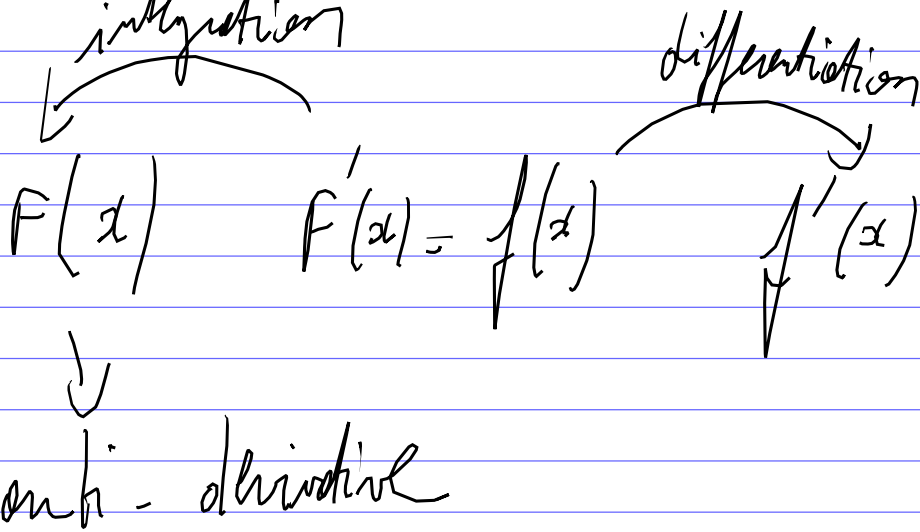 integration
differentiation
F(x) F'(x) = f(x) f'(x)
anti - derivative